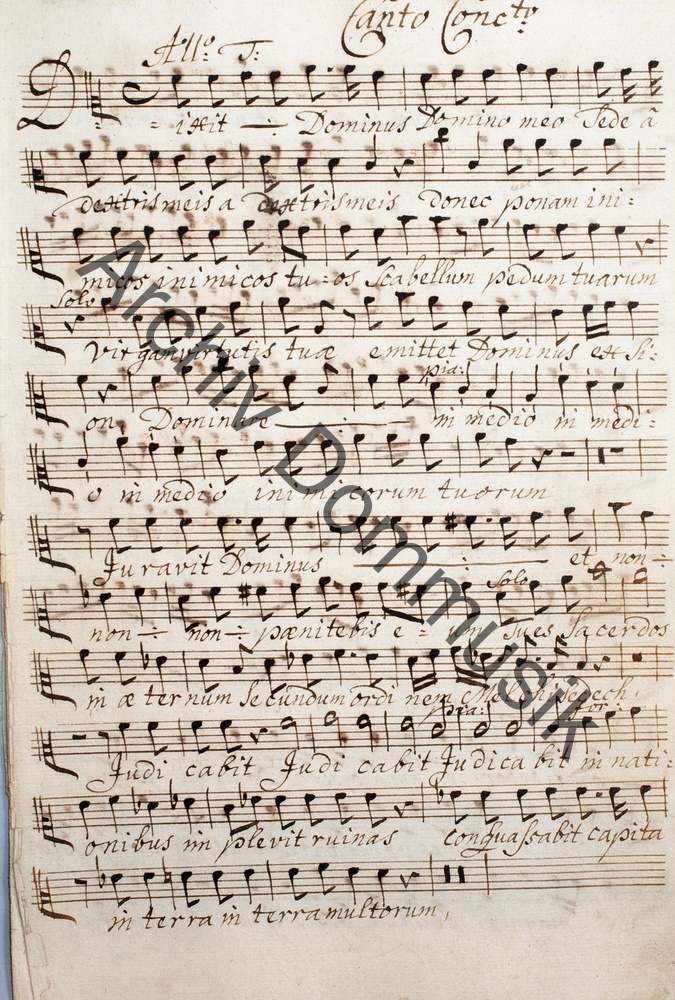 Canto Conc:to
All:o T:
Dixit ÷ Dominus Domino meo Sede â
dextris meis a dextris meis donec ponam ini:
micos inimicos tu:os scabellum pedum tuarum
Solo
Virgam virtutis tuæ emittet Dominus ex Si:
pia:
on, Dominare ÷ in medio in medi:
o in medio inimicorum tuorum
Juravit Dominus ÷ et non ÷
Solo
non ÷ non ÷ pænitebis e:um Tu es Sacerdos
in æternum Secundum ordinem Melchisedech,
pia: for:
Judicabit Judicabit Judicabit in nati:
onibus implevit ruinas conquassabit capita
in terra in terra multorum,
Archiv Dommusik